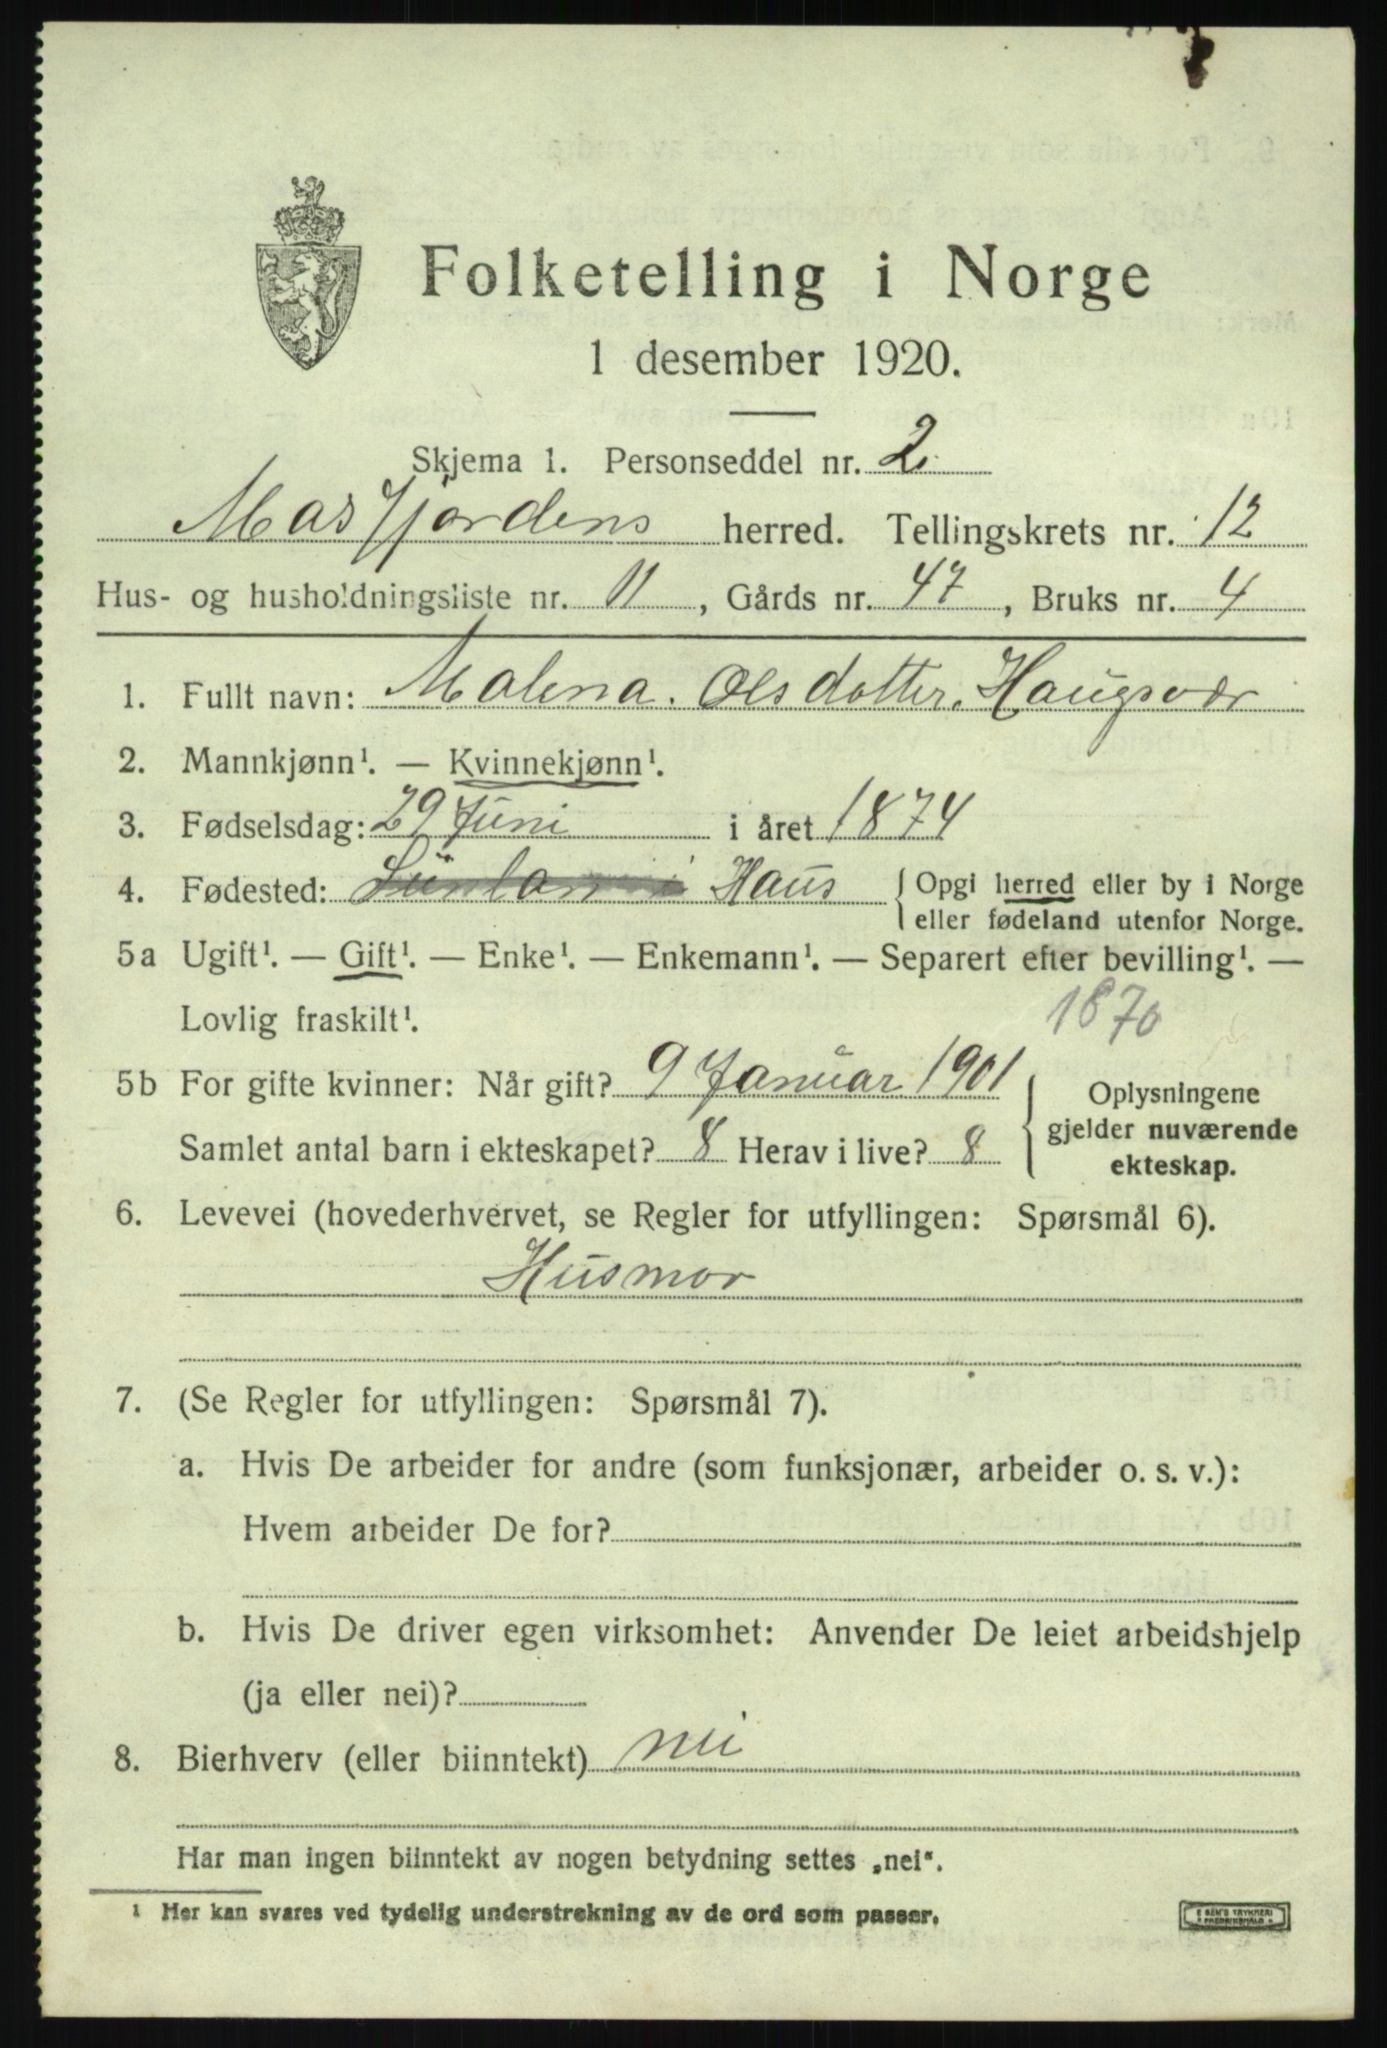 Folketelling i Norge
1 desember 1920.
Skjema 1. Personseddel nr. 2
Masfjordens herred. Tellingskrets nr. 12
Hus- og husholdningsliste nr. 11, Gårds nr. 47, Bruks nr. 4
1. Fullt navn: Malena. Olsdotter. Haugsvær
2. Mannkjønn¹. — Kvinnekjønn¹.
3. Fødselsdag: 29 Juni i året 1874
4. Fødested: i Haus { Opgi herred eller by i Norge
eller fødeland utenfor Norge.
5a Ugift¹. — Gift¹. — Enke¹. — Enkemann¹. — Separert efter bevilling¹. —
Lovlig fraskilt¹. 1870
5b For gifte kvinner: Når gift? 9 Januar 1901
Samlet antal barn i ekteskapet? 8 Herav i live? 8
{ Oplysningene
gjelder nuværende
ekteskap.
6. Levevei (hovederhvervet, se Regler for utfyllingen: Spørsmål 6).
Husmor
7. (Se Regler for utfyllingen: Spørsmål 7).
a. Hvis De arbeider for andre (som funksjonær, arbeider o. s. v.):
Hvem arbeider De for?
b. Hvis De driver egen virksomhet: Anvender De leiet arbeidshjelp
(ja eller nei)?
8. Bierhverv (eller biinntekt) nei
Har man ingen biinntekt av nogen betydning settes „nei“.
¹ Her kan svares ved tydelig understrekning av de ord som passer.